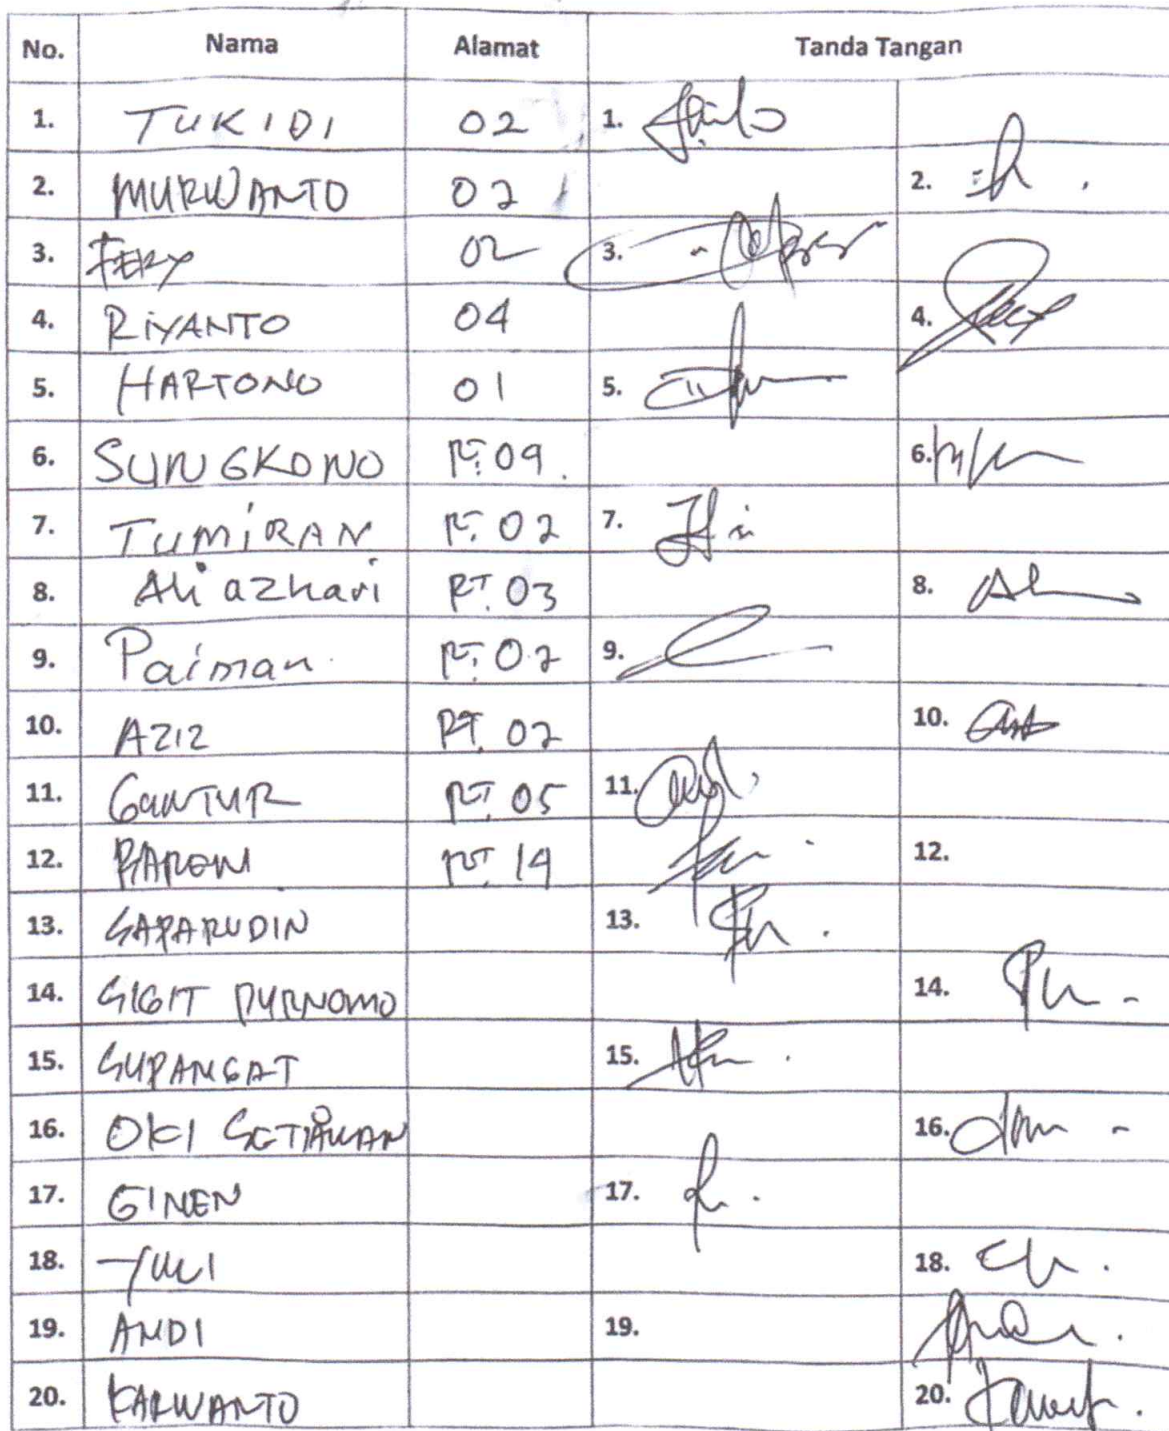 No. Nama Alamat Tanda Tangan
1. TUKIDI 02 1.
2. MURWANTO 02 2.
3. FERY 02 3.
4. RiYANTO 04 4.
5. HARTONO 01 5.
6. SUNGKONO RT. 09. 6.
7. TUMiRAN RT. 02 7.
8. Ali azhari RT. 03 8.
9. Paiman. RT. 02 9.
10. AZIZ RT. 02 10.
11. GUNTUR RT. 05 11.
12. RT. 14 12.
13. SAPARUDIN 13.
14. SIGIT PURNOMO 14.
15. SUPANGAT 15.
16. OKI SETIAWAN 16.
17. GINEN 17.
18. YULI 18.
19. ANDI 19.
20. KARWANTO 20.